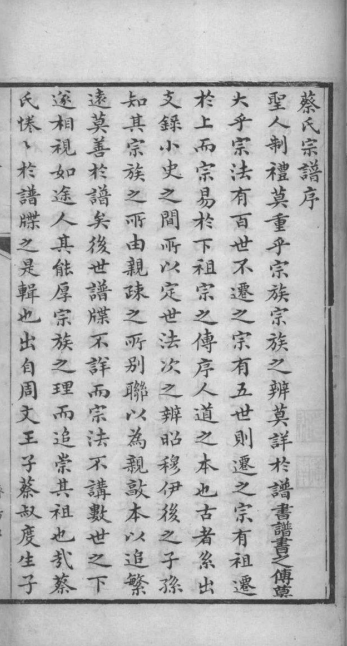 蔡氏宗譜序
聖人制禮莫重乎宗族宗族之辨莫詳於譜書譜書之傳莫
大乎宗法有百世不遷之宗有五世則遷之宗有祖遷
於上而宗易於下祖宗之傳序人道之本也古者系出
支錄小史之間所以定世法次之辨昭穆伊後之子孫
知其宗族之所由親疎之所别聯以為親敦本以追繁
遠莫善於譜矣後世譜牒不詳而宗法不講數世之下
遂相視如途人其能厚宗族之理而追崇其祖也哉蔡
氏惓〻於譜牒之是輯也出自周文王子蔡叔度生子